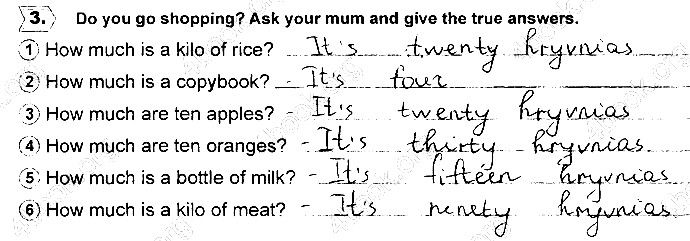 3. Do you go shopping? Ask your mum and give the true answers.
1 How much is a kilo of rice? It's twenty hryvnias
2 How much is a copybook? - It's four
3 How much are ten apples? - It's twenty hryvnias
4 How much are ten oranges? - It's thirty hryvnias.
5 How much is a bottle of milk? - It's fifteen hryvnias.
6 How much is a kilo of meat? - It's nenety hryvnias.